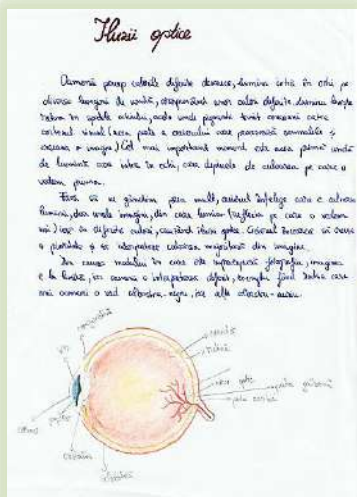 Iluzii optice
Oamenii percep culorile diferite deoarece, lumina intră în ochi pe
diverse lungimi de undă, corespunzând unor culori diferite. Lumina lovește
retina în spatele ochiului, acolo unde pigmenții trimit conexiuni către
cortexul vizual (acea parte a creierului care procesează semnalele și
creează o imagine) Cel mai important moment este acea primă undă
de lumină care intră în ochi, care depinde de culoarea pe care o
vedem prima.
Fără să ne gândim prea mult, creierul înțelege care e culoarea
luminii, dar unele imagini, din care lumina (reflexia pe care o vedem
noi) iese în diferite culori, cauzând iluzia optică. Creierul încearcă să creeze
o și să interpreteze culoarea majoritară din imagine.
Din cauza modului în care este fotografia, imaginea
e la limită, iar oamenii o interpretează diferit, exemplu fiind rochia care
unii oameni o văd albastru-negru, iar alții albastru-auriu.
conjunctivă
iris
cornee
pupilă
cristalin
sclerotică
coroidă
retină
nerv optic
pata galbenă
pata oarbă